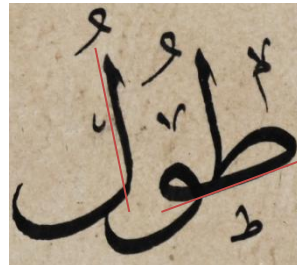 طُوْلُ